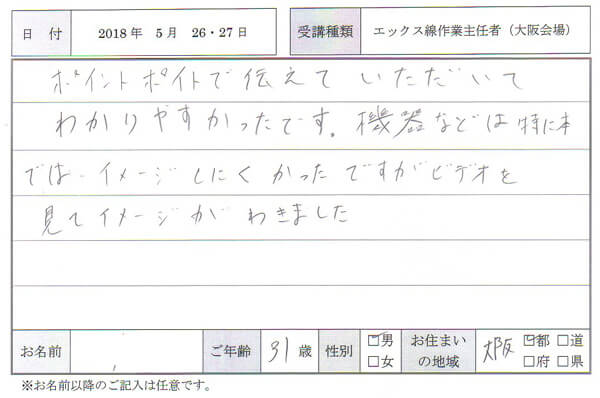 日付 2018年 5月 26・27日 受講種類 エックス線作業主任者（大阪会場）
ポイントポイトで伝えていただいて
わかりやすかったです。機器などは特に本
では イメージしにくかったですがビデオを
見てイメージがわきました
お名前 ご年齢 31歳 性別 ☑男 □女 お住まいの地域 大阪 ☑都 □道 □府 □県
※お名前以降のご記入は任意です。